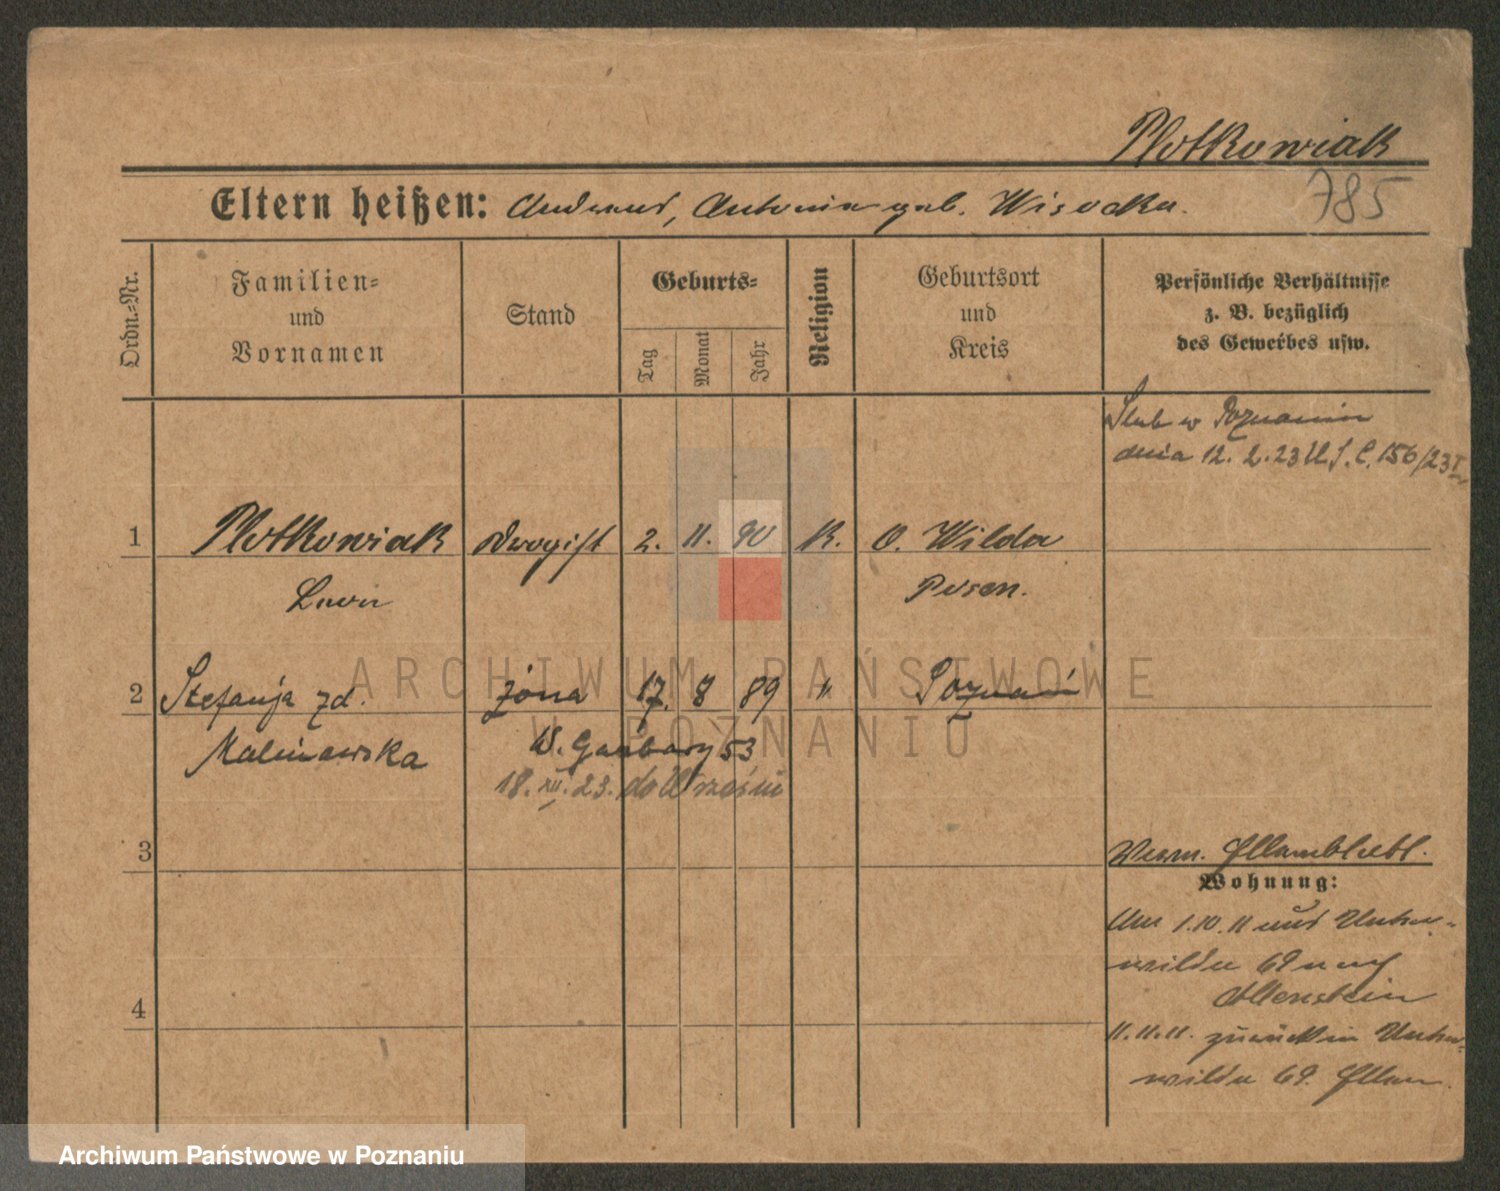 Plotkowiak
Eltern heißen: Andreas, Antonia geb. Wisocka.
785
Ordn.=Nr.
Familien=
und
Vornamen
Stand
Geburts=
Tag
Monat
Jahr
Religion
Geburtsort
und
Kreis
Persönliche Verhältnisse
z. B. bezüglich
des Gewerbes usw.
Ślub w Poznaniu
dnia 12. 2. 23 U.S.C. 156/23 I
1 Plotkowiak Drogist 2. 11. 90 K. O. Wilda
Leon Posen.
2 Stefanja zd. żona 17. 8 89 " Poznań
Malinowska W. Garbary 53
18. XII. 23. do Wrześni
3
Wohnung:
Am 1.10.11 aus Unter-
wilda 69 nach
Allenstein
11.11.11. zurück in Unter-
wilda 69.
4
ARCHIWUM PAŃSTWOWE
W POZNANIU
Archiwum Państwowe w Poznaniu